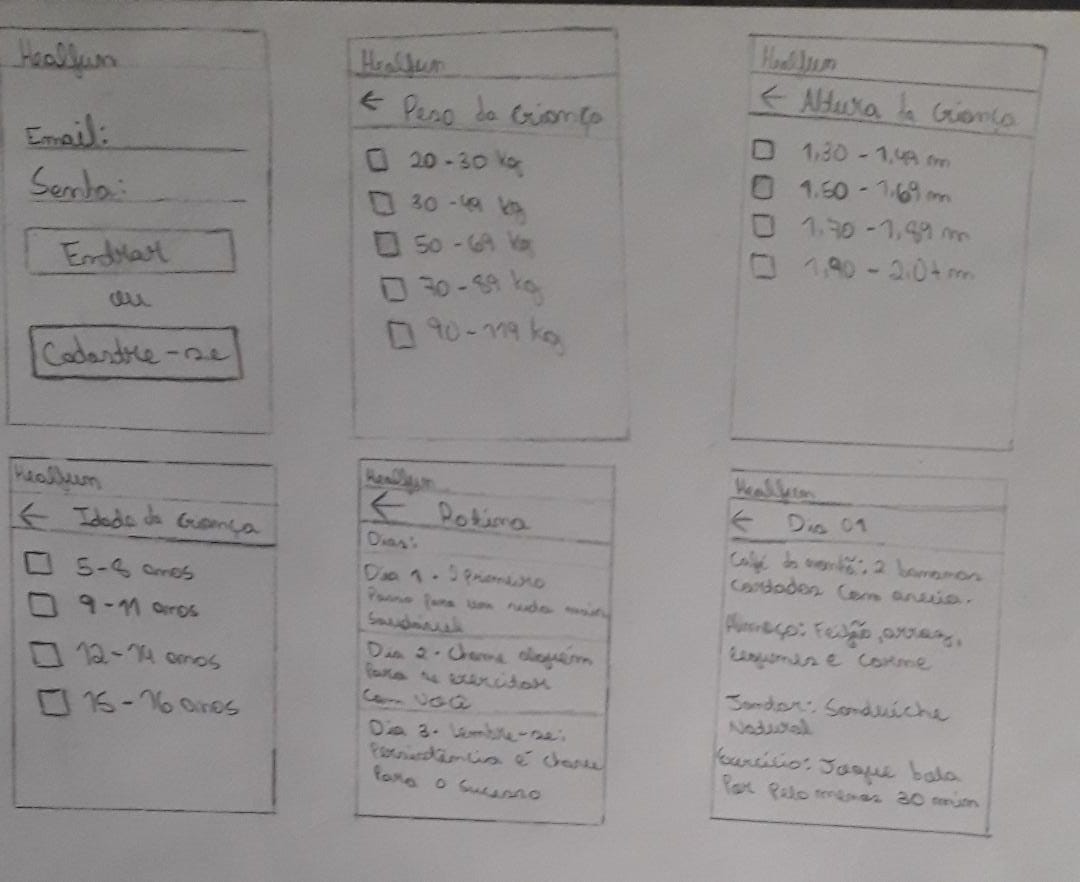 Healfun
Email:
Senha:
Entrar
ou
Cadastre-se
Healfun
← Peso da Criança
20-30 kg
30-49 kg
50-69 kg
70-89 kg
90-119 kg
Healfun
← Altura da Criança
1,30 - 1,49 m
1,50 - 1,69 m
1,70 - 1,89 m
1,90 - 2,0+ m
Healfun
← Idade da Criança
5-8 anos
9-11 anos
12-14 anos
15-16 anos
Healfun
← Rotina
Dias:
Dia 1 - O primeiro
Passo para um vida mais
Saudável
Dia 2 - Chame alguém
Para se exercitar
Com você
Dia 3 - Lembre-se:
Persistência é chave
Para o Sucesso
Healfun
← Dia 01
Café da manhã: 2 bananas
Cortadas Com aveia.
Almoço: Feijão, arroz,
legumes e Carne
Jantar: Sanduíche
Natural
Exercício: Jogue bola
Por Pelo menos 30 min